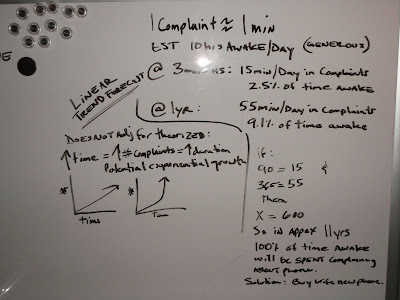 1 Complaint ≈ 1 min
EST 10 hrs AWAKE/Day (GENEROUS)
LINEAR
TREND FORECAST
@ 3 months: 15 min/Day in Complaints
2.5% of time awake
@ 1yr: 55 min/Day in Complaints
9.1% of time awake
DOES NOT Adj for theorized:
↑ time = ↑ # Complaints = ↑ duration
Potential exponential growth
#
time
#
Time
if:
90 = 15 &
365 = 55
then
X = 600
So in appox 11 yrs
100% of time AWAKE
will be SPENT complaining
ABOUT phone.
Solution: Buy wife new phone.